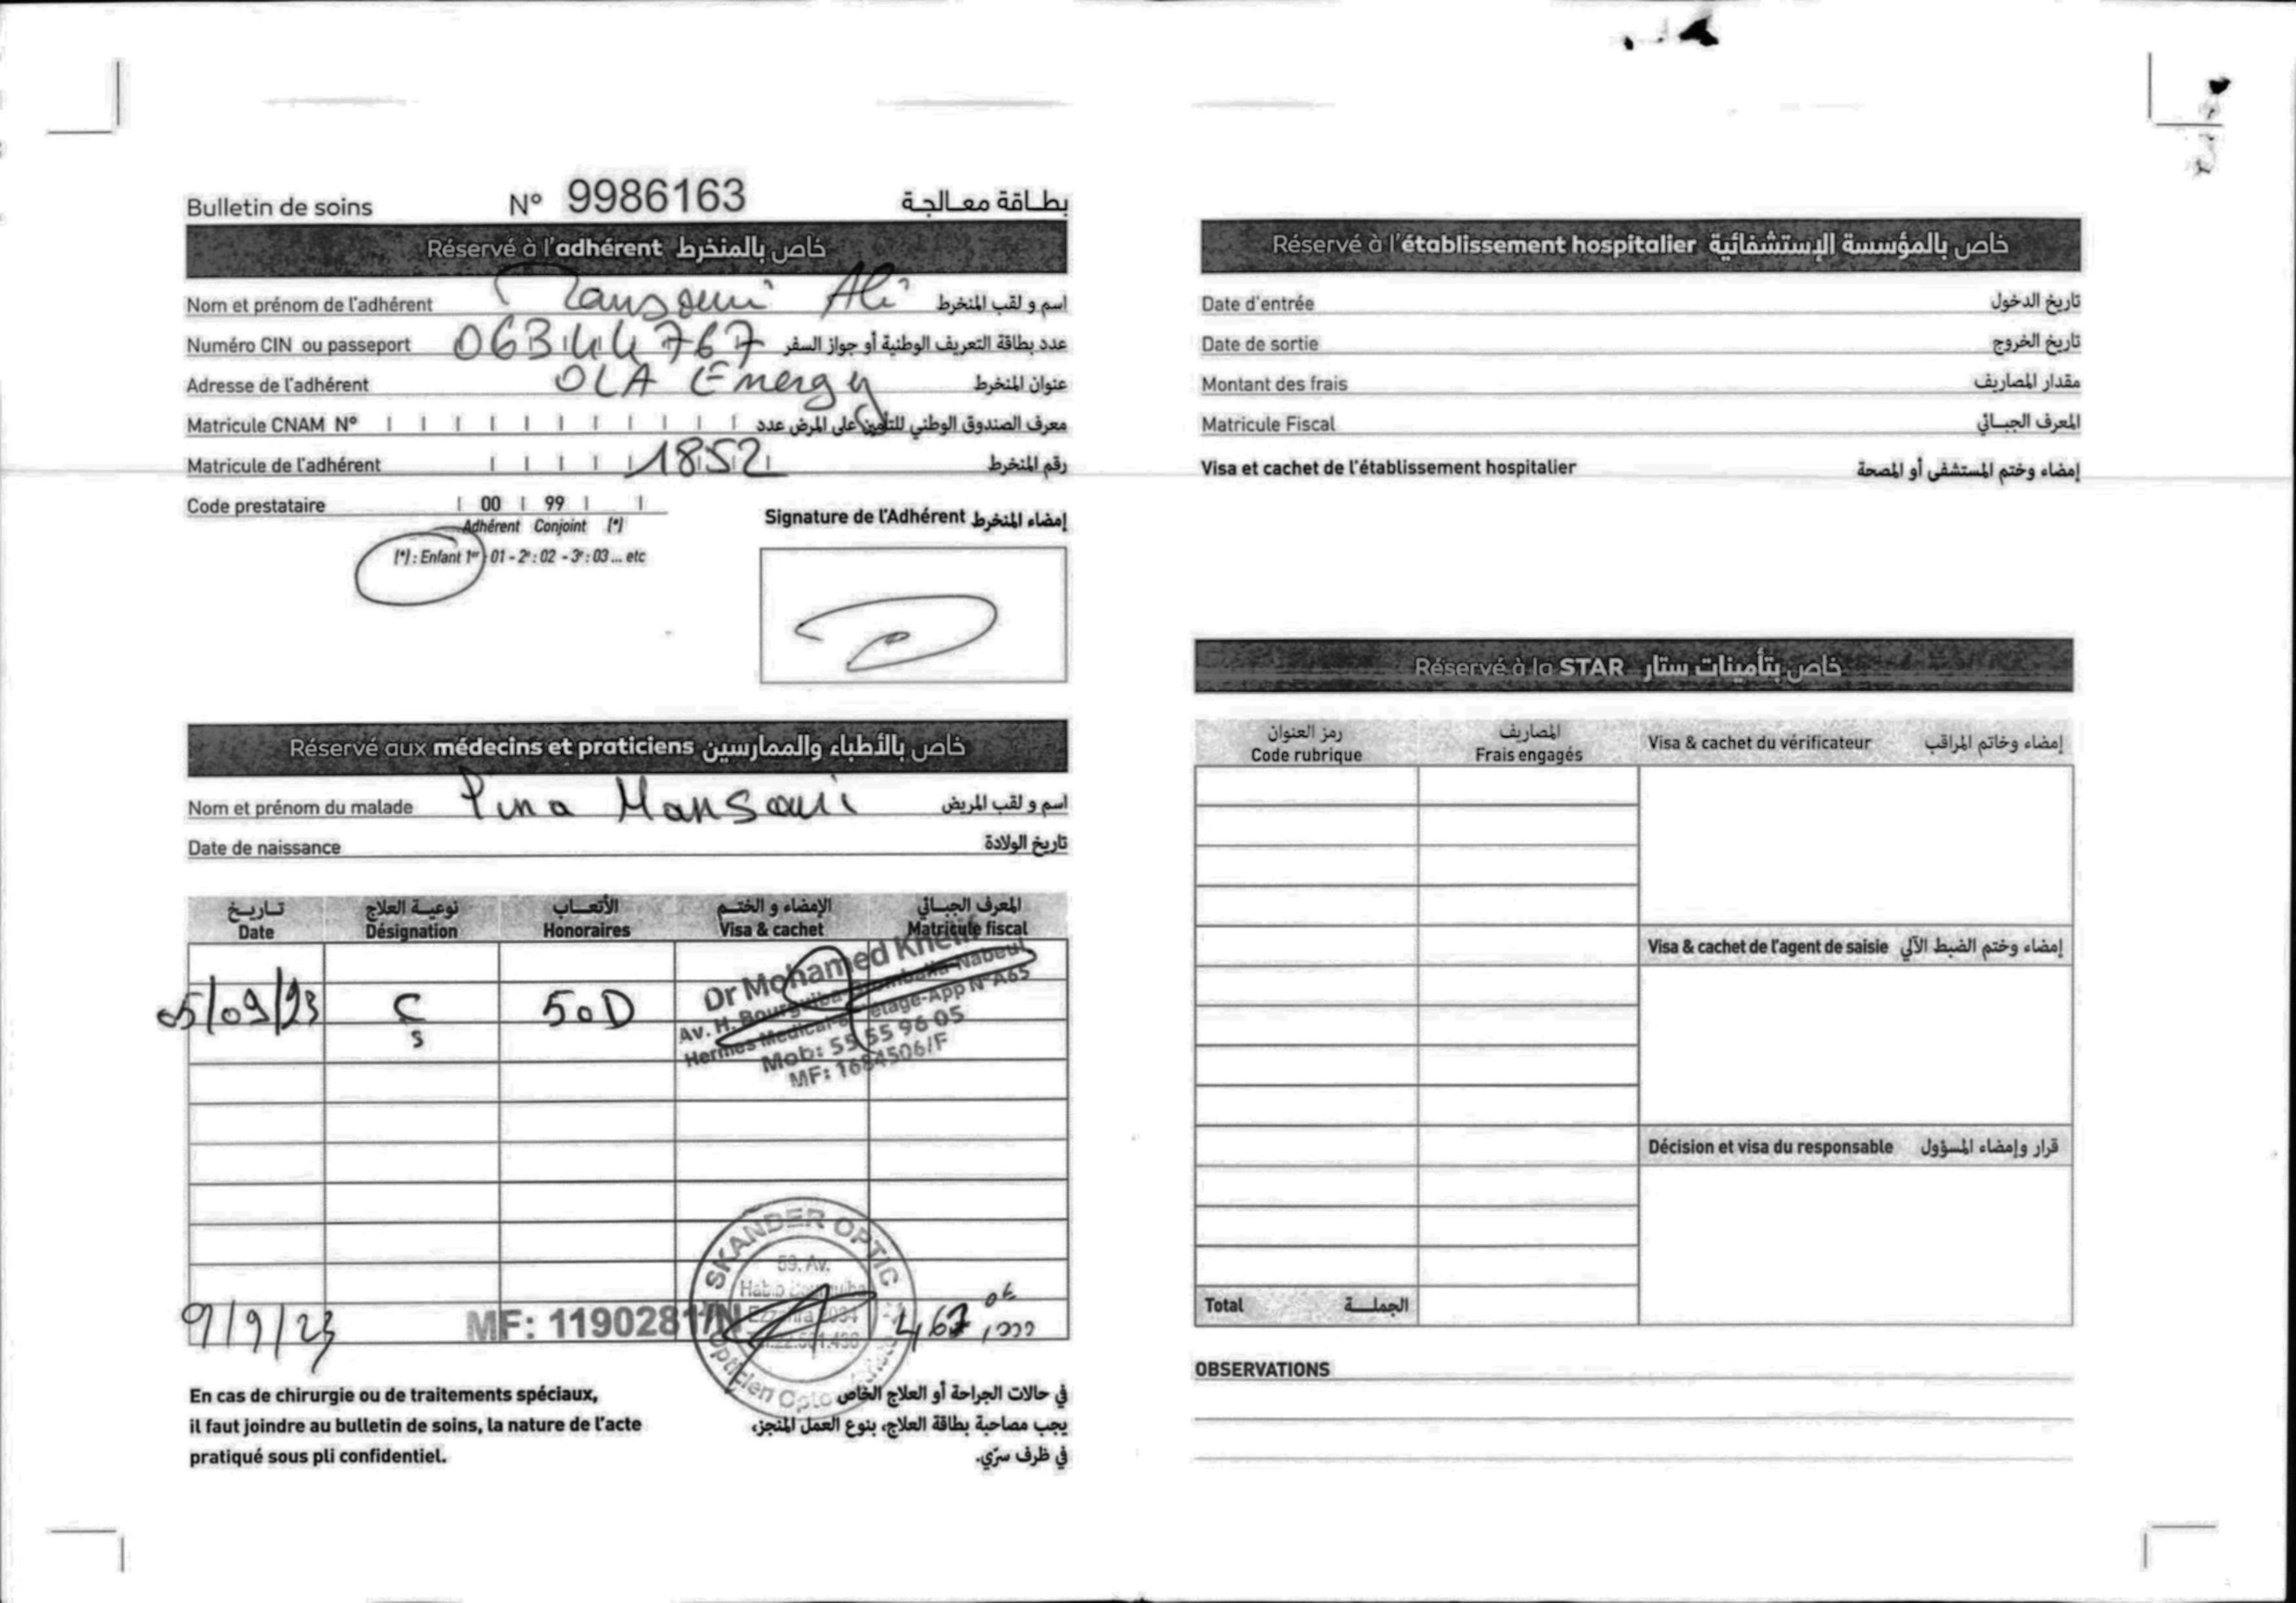 Bulletin de soins N° 9986163 بطاقة معالجة
Réservé à l'adhérent خاص بالمنخرط
Nom et prénom de l'adhérent Mansouri Ali اسم و لقب المنخرط
Numéro CIN ou passeport 06344767 عدد بطاقة التعريف الوطنية أو جواز السفر
Adresse de l'adhérent OLA Energy عنوان المنخرط
Matricule CNAM N° معرف الصندوق الوطني للتأمين على المرض عدد
Matricule de l'adhérent 1852 رقم المنخرط
Code prestataire 00 99
Adhérent Conjoint (*)
(*) : Enfant 1er : 01 - 2e : 02 - 3e : 03 ... etc
Signature de l'Adhérent إمضاء المنخرط
Réservé aux médecins et praticiens خاص بالأطباء والممارسين
Nom et prénom du malade Mansouri اسم و لقب المريض
Date de naissance تاريخ الولادة
تاريخ نوعية العلاج الأتعاب الإمضاء و الختم المعرف الجبائي
Date Désignation Honoraires Visa & cachet Matricule fiscal
05/09/23 Cs 50D
Dr Mohamed
Av. H. Bourguiba Nabeul
Hermes Medical etage-App N°A65
Mob: 55 55 96 05
MF: 1684506/F
SKANDER OPTIC
59. Av.
Habib Bourguiba
Ezzahra 2034
Opticien
9/9/23 MF: 1190281/N 467,000
En cas de chirurgie ou de traitements spéciaux,
il faut joindre au bulletin de soins, la nature de l'acte
pratiqué sous pli confidentiel.
في حالات الجراحة أو العلاج الخاص
يجب مصاحبة بطاقة العلاج، بنوع العمل المنجز،
في ظرف سرّي.
Réservé à l'établissement hospitalier خاص بالمؤسسة الإستشفائية
Date d'entrée تاريخ الدخول
Date de sortie تاريخ الخروج
Montant des frais مقدار المصاريف
Matricule Fiscal المعرف الجبائي
Visa et cachet de l'établissement hospitalier إمضاء وختم المستشفى أو المصحة
Réservé à la STAR خاص بتأمينات ستار
رمز العنوان المصاريف
Code rubrique Frais engagés Visa & cachet du vérificateur إمضاء وخاتم المراقب
Visa & cachet de l'agent de saisie إمضاء وختم الضبط الآلي
Décision et visa du responsable قرار وإمضاء المسؤول
Total الجملة
OBSERVATIONS